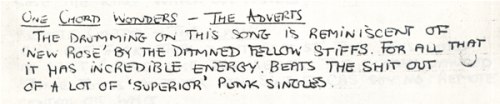 ONE CHORD WONDERS - THE ADVERTS
THE DRUMMING ON THIS SONG IS REMINISCENT OF
'NEW ROSE' BY THE DAMNED FELLOW STIFFS. FOR ALL THAT
IT HAS INCREDIBLE ENERGY. BEATS THE SHIT OUT
OF A LOT OF 'SUPERIOR' PUNK SINGLES.